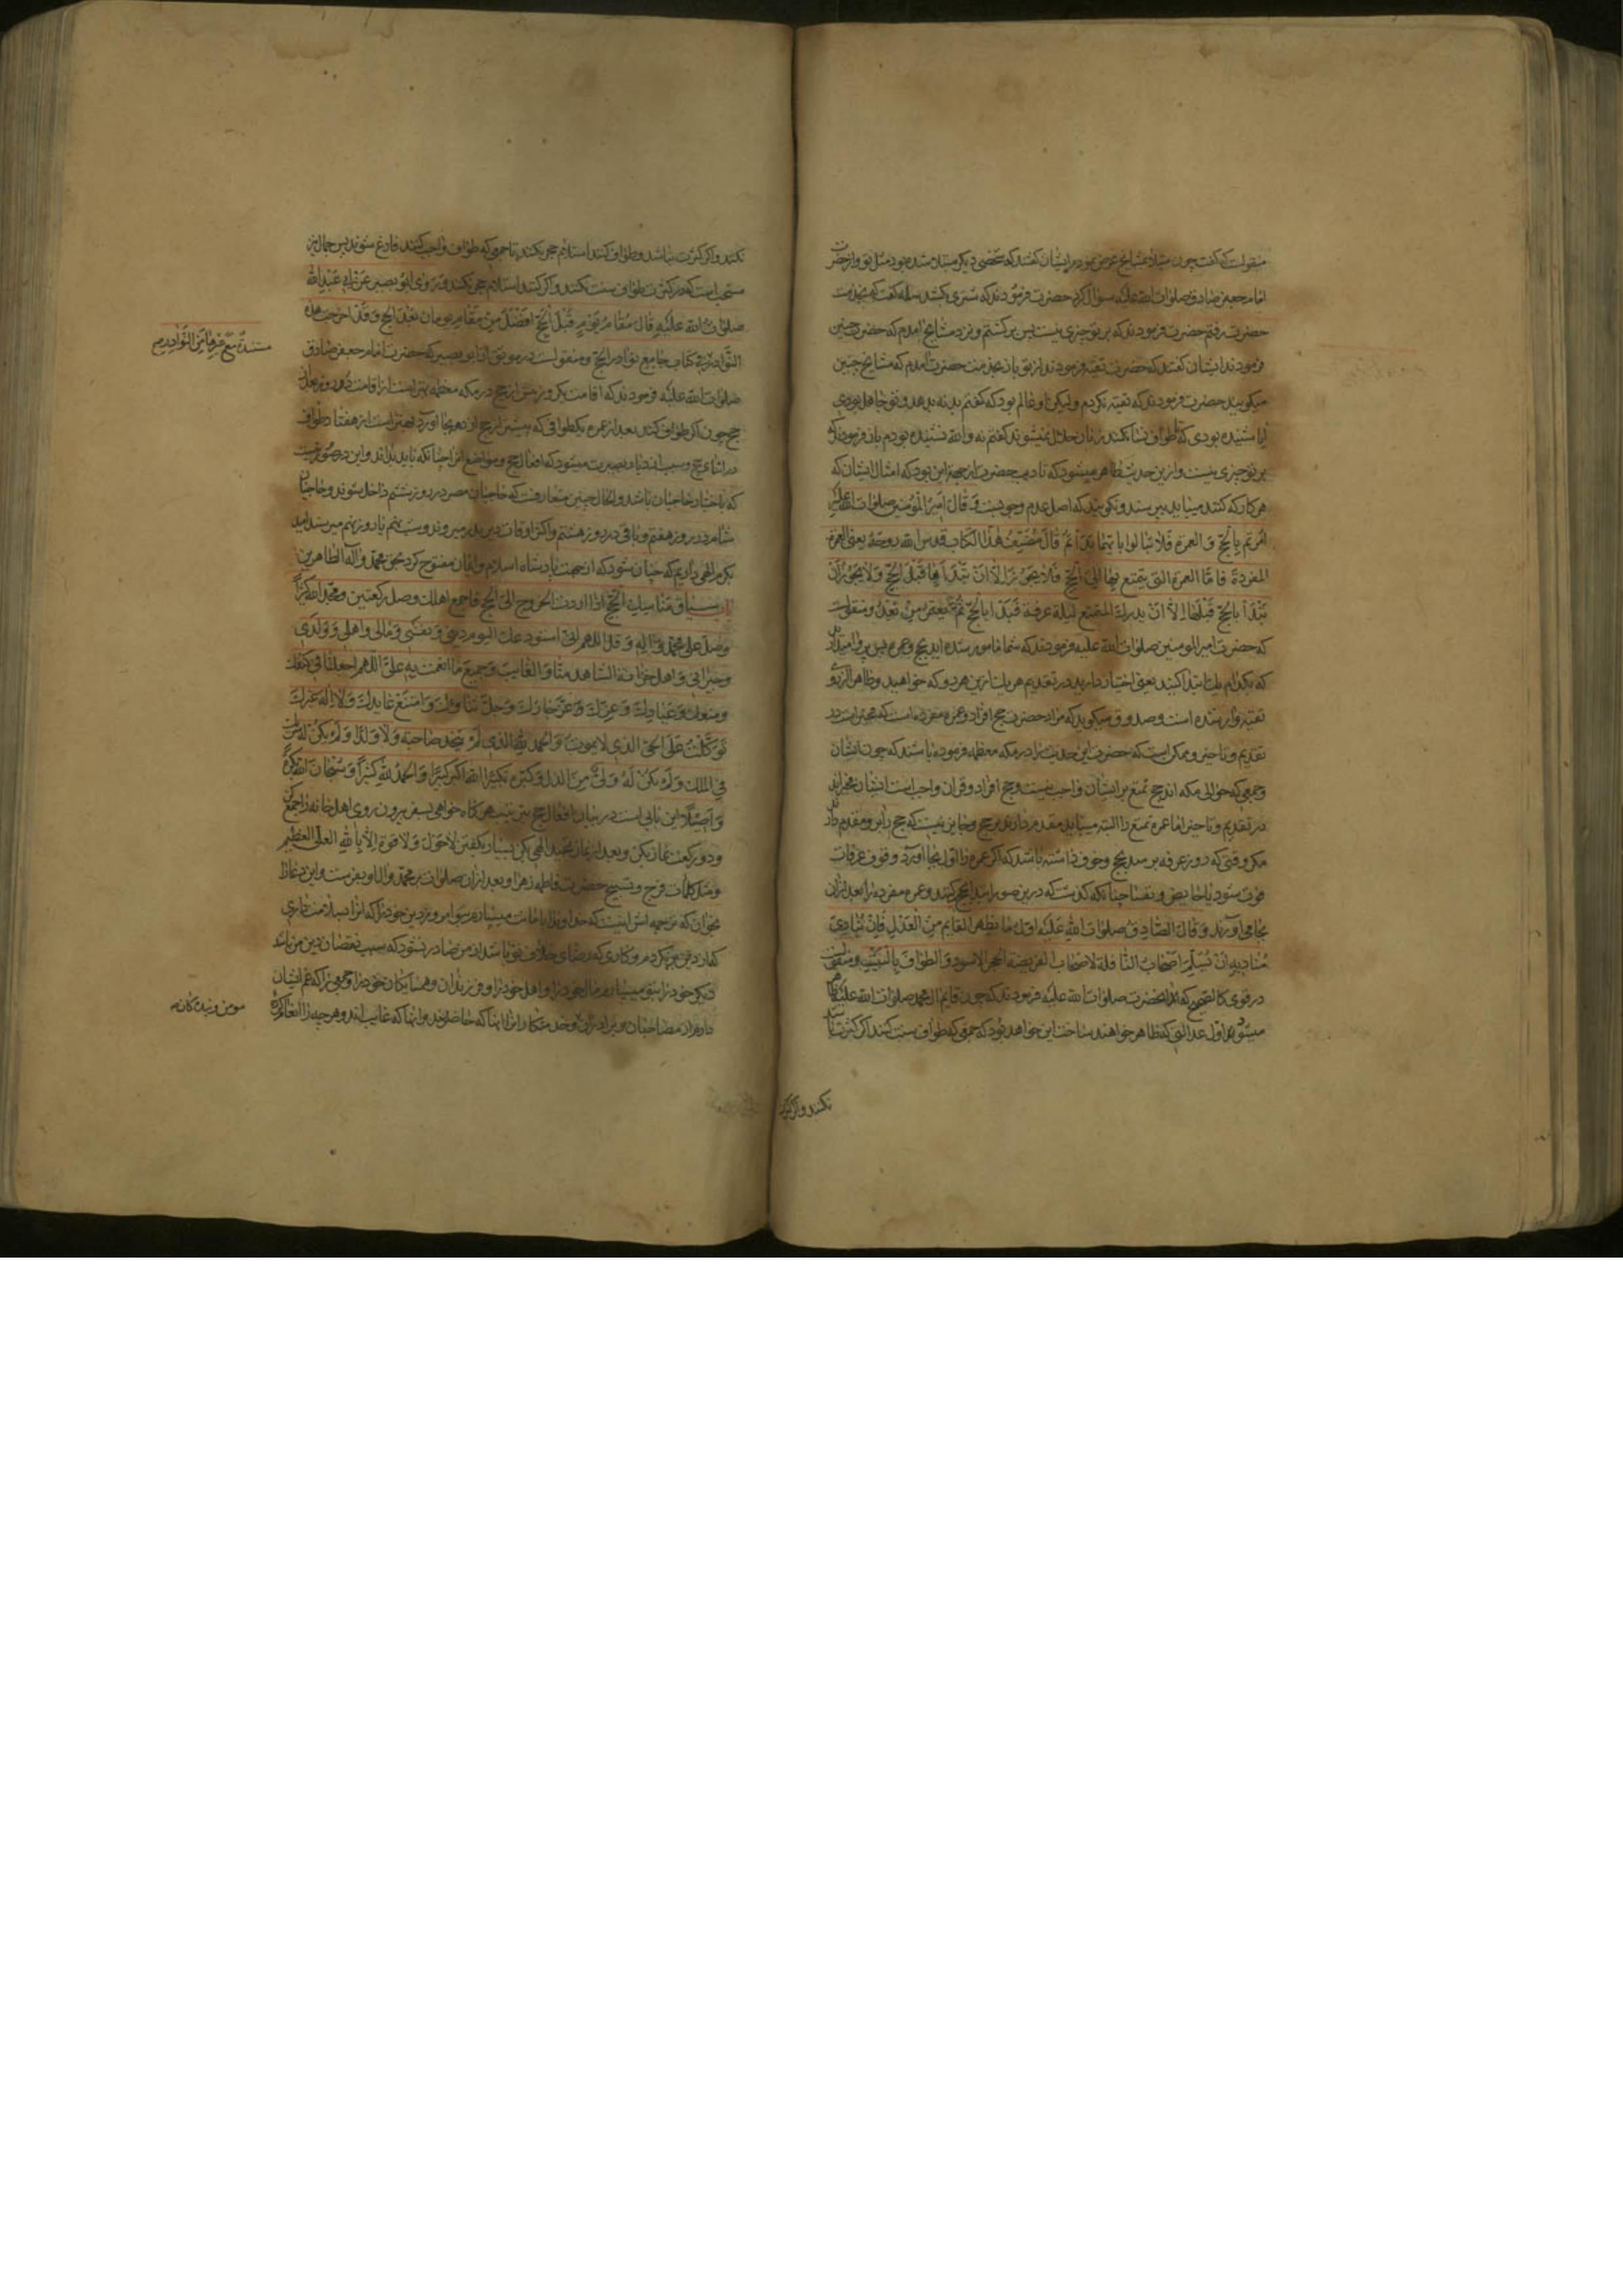 منقولست که گفت چون مسئله بمشایخ عرض نمودم ایشان گفتند که شخصی دیگر مبتلا شده بود مثل تو و از حضرت
امام جعفر صادق صلوات الله علیه سؤال کرد حضرت فرمودند که شتری بکشد
حضرت رفتم حضرت فرمودند که بر تو چیزی نیست پس برگشتم و نزد مشایخ آمدم که حضرت چنین
فرمودند ایشان گفتند که حضرت تقیه فرمودند از تو باز بخدمت حضرت آمدم که مشایخ چنین
میگویند حضرت فرمودند که تقیه نکردم ولیکن او عالم بود که گفتم بدنه بدهد و تو جاهل بودی
آیا شنیده بودی که تا طواف نسا نکنند زنان حلال نمیشوند گفتم نه والله نشنیده بودم باز فرمودند که
بر تو چیزی نیست و ازین حدیث ظاهر میشود که تادیب حضرت از جهة این بود که امثال ایشان که
هر کار که کنند میباید بپرسند و نگویند که اصل عدم وجوبست و قال امیر المؤمنین صلوات الله علیه
امرتم بالحج و العمرة فلا تبالوا بایهما بدأتم قال مصنف هذا الکتاب قدس الله روحه یعنی العمرة
المفردة فاما العمرة التی یتمتع بها الی الحج فلا یجوز الا ان تبدأ بها قبل الحج و لا یجوز ان
تبدأ بالحج قبلها الا ان یدرک المتمتع لیلة عرفة فیبدأ بالحج ثم یعتمر من بعده و منقولست
که حضرت امیر المومنین صلوات الله علیه فرمودند که شما مامور شده اید بحج و عمره پس پروا مدارید
که بکدام یک ابتدا کنید یعنی اختیار دارید در تقدیم هر یک ازین هر دو که خواهید و ظاهرا از روی
تقیه وارد شده است و صدوق میگوید که مراد حضرت حج افراد و عمره مفرده است که مخیر است در
تقدیم و تاخیر و ممکن است که حضرت این حدیث را در مکه معظمه فرموده باشند که چون ایشان
و جمعی که حوالی مکه اند حج تمتع بر ایشان واجب نیست و حج افراد و قران واجب است ایشان مخیرند
در تقدیم و تاخیر اما عمره تمتع را البته میباید مقدم دارند بر حج و جایز نیست که حج را برو مقدم دارند
مگر وقتی که در روز عرفه برسد بحج و خوف داشته باشد که اگر عمره را اول بجا آورد وقوف عرفات
فوت شود یا حایض و نفسا چنانکه گذشت که درین صور ابتدا بحج کنند و عمره مفرده را بعد از آن
بجا می آورند و قال الصادق صلوات الله علیه اول ما یظهر القایم من العدل فان ینادی
منادیه ان یسلم اصحاب النافلة لاصحاب الفریضة الحجر الاسود و الطواف بالبیت و منقولست
در قوی کالصحیح که آنحضرت صلوات الله علیه فرمودند که چون قایم آل محمد صلوات الله علیه ظاهر
میشود اول عدالتی که ظاهر خواهند ساخت این خواهد بود که جمعی که طواف سنت کنند اگر کثرت باشد
نکند و اگر کثرت
نکند و اگر کثرت نباشد و طواف کنند استلام حجر نکند تا جمعی که طواف واجب کنند فارغ شوند پس حال نیز
مستحب است که در کثرت طواف سنت نکنند و اگر کنند استلام حجر نکنند و روی ابو بصیر عن ابی عبد الله
صلوات الله علیه قال مقام یوم قبل الحج افضل من مقام یومان بعد الحج و قد اخرجت هذه
النوادر فی کتاب جامع نوادر الحج و منقولست در موثق از ابو بصیر که حضرت امام جعفر صادق
صلوات الله علیه فرمودند که اقامت یک روز پیش از حج در مکه معظمه بهتر است از اقامت دو روز بعد از
حج چون اگر طواف کنند بعد از عمره یک طوافی که پیش از حج
در اثنای حج و سبب ازدیاد بصیرت میشود که افعال حج و مواضع آنرا چنانکه باید بداند و این در صورتیست
که باختیار حاجیان باشد و الحال چنین متعارفست که حاجیان مصر در روز ششم داخل شوند و حاجیان
شام در روز هفتم و باقی در روز هشتم و اکثر اوقات
بکرم الهی داریم که چنان شود که از جهت پادشاه اسلام و ایمان مفتوح گردد بحق محمد و آله الطاهرین
باب سیاق مناسک الحج اذا اردت الخروج الی الحج فاجمع اهلک وصل رکعتین و مجد الله کثیرا
وصل علی محمد و آله و قل اللهم انی استودعک الیوم دینی و نفسی و مالی و اهلی و ولدی
و جیرانی و اهل حزانتی الشاهد منا و الغایب و جمیع ما انعمت به علی اللهم اجعلنا فی کنفک
و منعک و عیاذک و عزک عز جارک و جل ثناؤک و امتنع عایذک و لا اله غیرک
توکلت علی الحی الذی لا یموت و الحمد لله الذی لم یتخذ صاحبة و لا ولدا و لم یکن له شریک
فی الملک و لم یکن له ولی من الذل و کبره تکبیرا الله اکبر کبیرا و الحمد لله کثیرا و سبحان الله بکرة
و اصیلا این بابی است در بیان افعال حج بترتیب هر گاه خواهی بسفر بیرون روی اهل خانه را جمع کن
و دو رکعت نماز بکن و بعد از نماز تمجید الهی بکن بسیار بگفتن لا حول و لا قوة الا بالله العلی العظیم
و مثل کلمات فرج و تسبیح حضرت فاطمه زهرا و بعد از آن صلوات بر محمد و آل او بفرست و این دعا را
بخوان که ترجمه اش اینست که خداوندا بامانت میسپارم بتو امروز دین خود را که آنرا بسلامت داری
که از دین برنگردم و کاری که رضای خلاف تو باشد از من صادر نشود که سبب نقصان دین من باشد
دیگر خود را بتو میسپارم و مال خود را و اهل خود را و فرزندان و همسایگان خود را و جمعی را که غم ایشان
دارم از مصاحبان و برادران و خدمتکاران از آنها که حاضرند و آنها که غایب اند و هر چه را انعام کرده
مسندة مع غیرها من النوادر